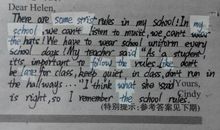 Dear Helen,
There are some strict rules in my school! In my
school, we can't listen to music, we can't wear
the hats! We have to wear school uniform every
school days! My teacher said "As a student,
it's important to follow the rules like, don't
be late for class, keep quiet in class, don't run in
the hallways...." I think what she said
is right, so I remember the school rules.
Yours,
Cindy